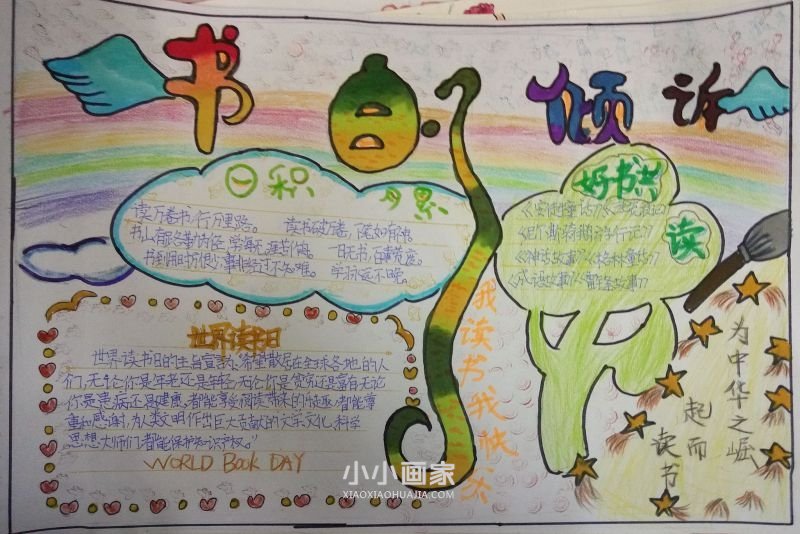 书 倾诉
日积月累
读万卷书,行万里路。 读书破万卷
书山有路勤为径,学海无涯苦作舟。 一日无书,百事荒废。
书到用时方恨少,事非经过不知难。 学习永远不晚。
好书共读
《安徒生童话》
《神话故事》《格林童话》
《成语故事》《雷锋故事》
世界读书日
世界读书日的主旨宣言为:“希望散居在全球各地的人
们,无论你是年老还是年轻,无论你是贫穷还是富有,无论
你是患病还是健康,都能享受阅读带来的乐趣,都能尊
重和感谢,为人类文明作出巨大贡献的文学、文化、科学
思想大师们,都能保护知识产权。”
WORLD Book DAY
我读书我快乐
为中华之崛
起而
读书
小小画家
XIAOXIAOHUAJIA.COM